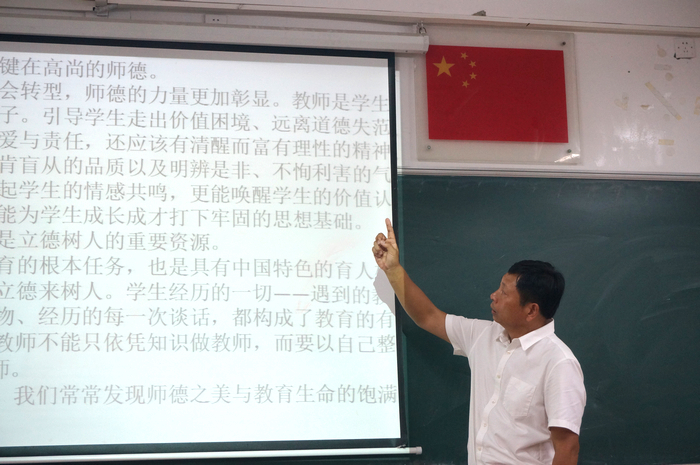 键在高尚的师德。
会转型，师德的力量更加彰显。教师是学生
子。引导学生走出价值困境、远离道德失范
爱与责任，还应该有清醒而富有理性的精神
肯盲从的品质以及明辨是非、不怕利害的气
起学生的情感共鸣，更能唤醒学生的价值认
能为学生成长成才打下牢固的思想基础。
是立德树人的重要资源。
育的根本任务，也是具有中国特色的育人
立德来树人。学生经历的一切——遇到的教
物、经历的每一次谈话，都构成了教育的有
教师不能只依凭知识做教师，而要以自己整
师。
我们常常发现师德之美与教育生命的饱满